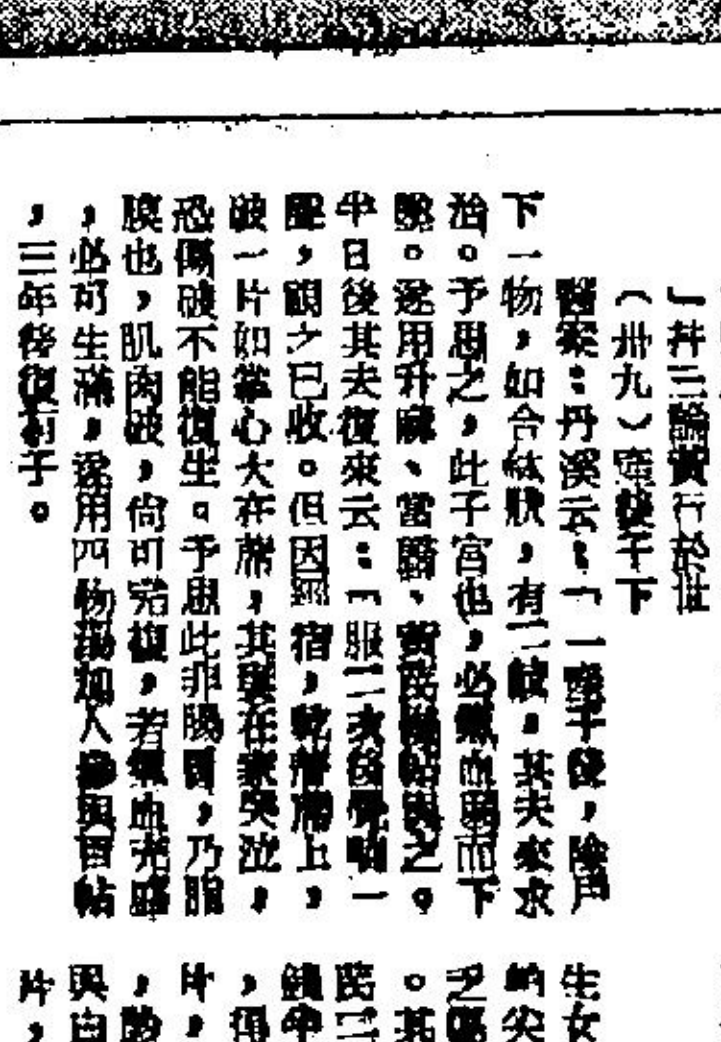 」幷三論實行於世
（卅九）產後子下
醫案：丹溪云：「一產子後，陰戶
下一物，如合缽狀，有二歧。其夫來求
治。予思之，此子宮也，必氣血弱而下
墜。遂用升麻、當歸、黃芪幾帖與之。
半日後其夫復來云：「服二次後覺響一
聲，視之已收。但因經宿，乾着席上，
破一片如掌心大在席，其妻在家哭泣，
恐傷破不能復生。予思此非腸胃，乃脂
膜也，肌肉破，尚可完復，若氣血充盛
，必可生滿，遂用四物湯加人參與百帖
，三年後復有子。
生女
的尖
之
。其
三
錢中
，得
片，
，
與白
片，